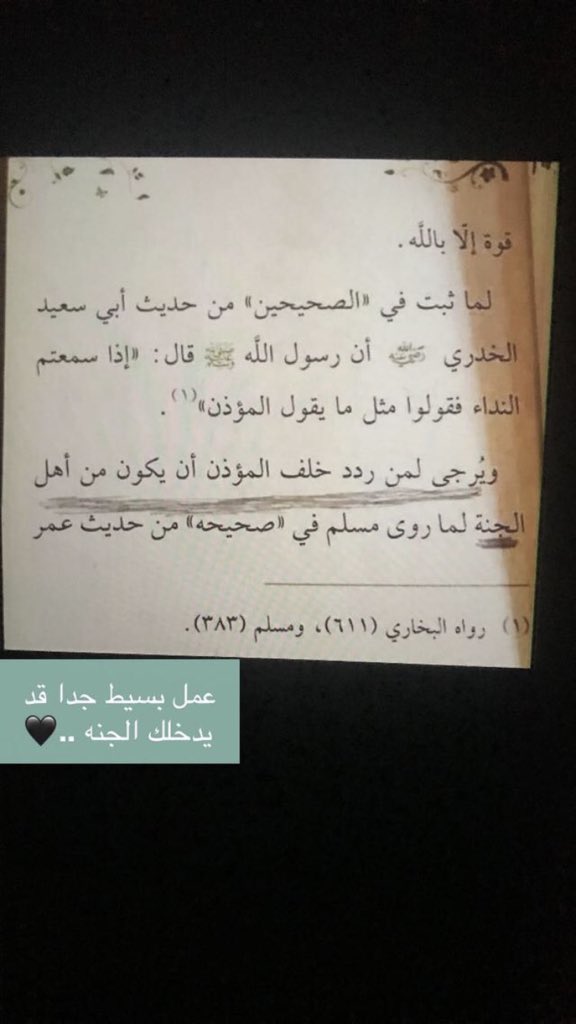 قوة إلّا باللَّه.
لما ثبت في «الصحيحين» من حديث أبي سعيد
الخدري رضي الله عنه أن رسول اللَّه ﷺ قال: «إذا سمعتم
النداء فقولوا مثل ما يقول المؤذن»(١).
ويُرجى لمن ردد خلف المؤذن أن يكون من أهل
الجنة لما روى مسلم في «صحيحه» من حديث عمر
(١) رواه البخاري (٦١١)، ومسلم (٣٨٣).
عمل بسيط جدا قد
يدخلك الجنه ..🖤